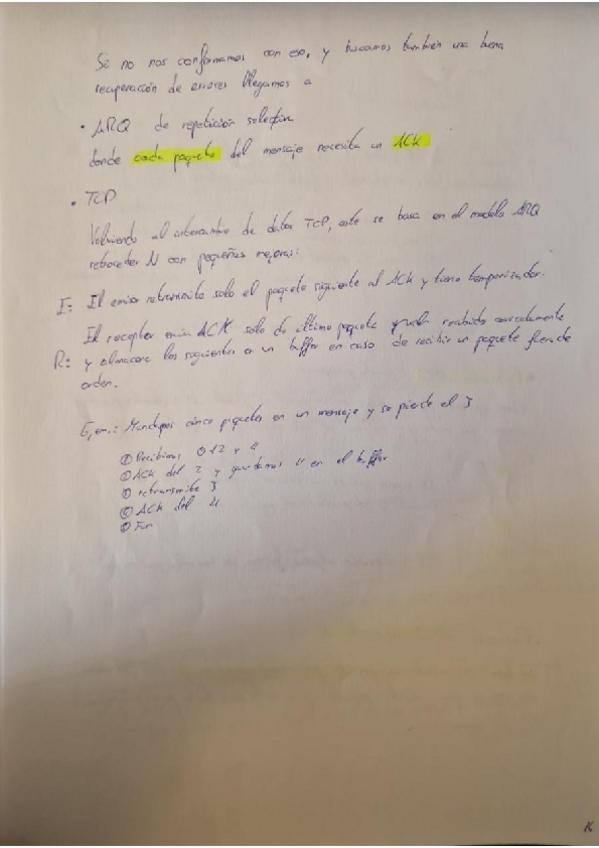 Si no nos conformamos con eso, y buscamos también una buena
recuperación de errores llegamos a
• ARQ de repetición selectiva
donde cada paquete del mensaje necesita un ACK
• TCP
Volviendo al intercambio de datos TCP, este se basa en el modelo ARQ
retroceder N con pequeñas mejoras:
E: El emisor retransmite solo el paquete siguiente al ACK y tiene temporizador.
El receptor envia ACK solo de último paquete recibido correctamente
R: y almacena los siguientes en un buffer en caso de recibir un paquete fuera de
orden.
Ejem.: Mandamos cinco paquetes en un mensaje y se pierde el 3
① Recibimos 0 1 2 y 4
② ACK del 2 y guardamos 4 en el buffer
③ retransmite 3
④ ACK del 4
⑤ Fin
16